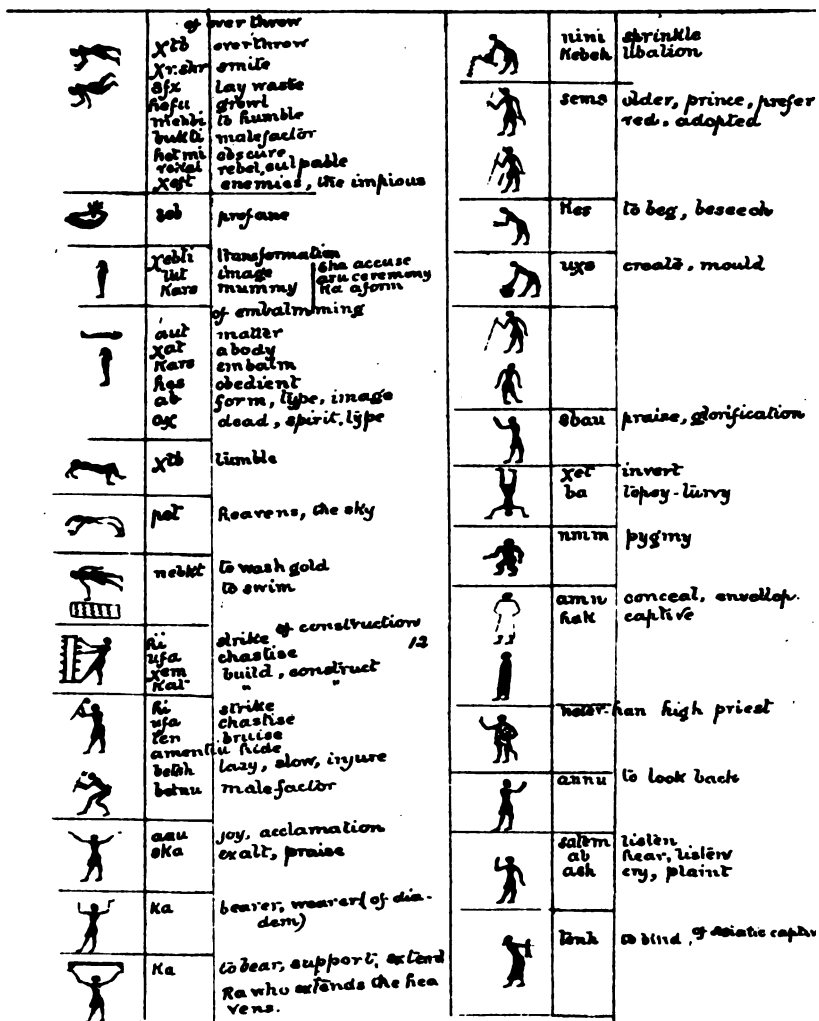 of overthrow
χtb overthrow
χr.skr smite
sfχ lay waste
hefu growl
mehbi to humble
bukti malefactor
hetmi obscure
rebel, culpable
χeft enemies, the impious
seb profane
χebti transformation
tut image
Kars mummy
sha accuse
asu ceremony
Ka a form
of embalmming
áut matter
χat a body
Kars embalm
hes obedient
ab form, type, image
aχ dead, spirit, type
χtb tumble
pet heavens, the sky
nebkt to wash gold
to swim
of construction
hi strike 12
ufa chastise
χem build, construct
Kat " "
hi strike
ufa chastise
ten bruise
amentiu hide
betsh lazy, slow, injure
betnu malefactor
aau joy, acclamation
sKa exalt, praise
Ka bearer, wearer (of dia-
dem)
Ka to bear, support, extend
Ra who extends the hea
vens.
nini sprinkle
Kebeh libation
sems older, prince, prefer
red, adopted
Kes to beg, beseech
uχs create, mould
sbau praise, glorification
χet invert
ba topsy-turvy
nmm pygmy
amn conceal, envellop.
hak captive
neter-han high priest
annu to look back
satem listen
ab hear, listen
ash cry, plaint
tenh to bind, of asiatic captiv